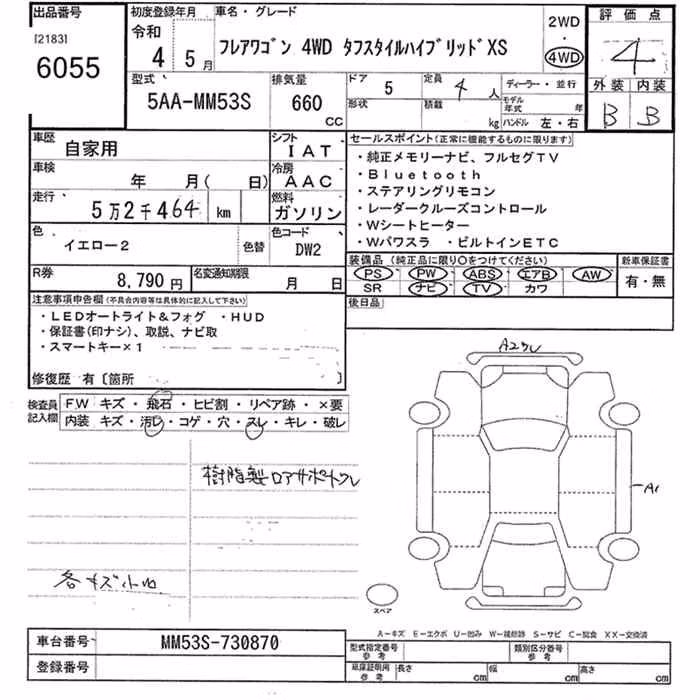 出品番号
[2183]
6055
初度登録年月
令和
4 5月
車名・グレード
フレアワゴン 4WD タフスタイルハイブリッドXS
2WD
・
4WD
評価点
4
外装 内装
B B
型式
5AA-MM53S
排気量
660
cc
ドア
5
定員
4人
形状
積載
kg
ディーラー・並行
モデル年式 年
ハンドル 左・右
車歴
自家用
シフト
IAT
車検
年 月( 日)
冷房
AAC
走行
5万2千464 km
燃料
ガソリン
色
イエロー2
色替
色コード
DW2
R券
8,790円
名変通知期限
月 日
セールスポイント(正常に機能するものに限ります)
・純正メモリーナビ、フルセグTV
・Bluetooth
・ステアリングリモコン
・レーダークルーズコントロール
・Wシートヒーター
・Wパワスラ ・ビルトインETC
装備品(純正品に限り○をつけてください)
PS PW ABS エアB AW
SR ナビ TV カワ
新車保証書
有・無
後日品
注意事項申告欄(不具合内容等は具体的に記入して下さい)
・LEDオートライト&フォグ ・HUD
・保証書(印ナシ)、取説、ナビ取
・スマートキー×1
修復歴 有〔箇所 〕
検査員
記入欄
FW キズ・飛石・ヒビ割・リペア跡・×要
内装 キズ・汚レ・コゲ・穴・スレ・キレ・破レ
樹脂製ロアサポートワレ
各キズ小凹
A2ワレ
A1
スペア
A-キズ E-エクボ U-凹み W-補修跡 S-サビ C-腐食 XX-交換済
車台番号
MM53S-730870
登録番号
型式指定番号
参考
類別区分番号
参考
車庫証明用
参考
長さ cm
幅 cm
高さ cm